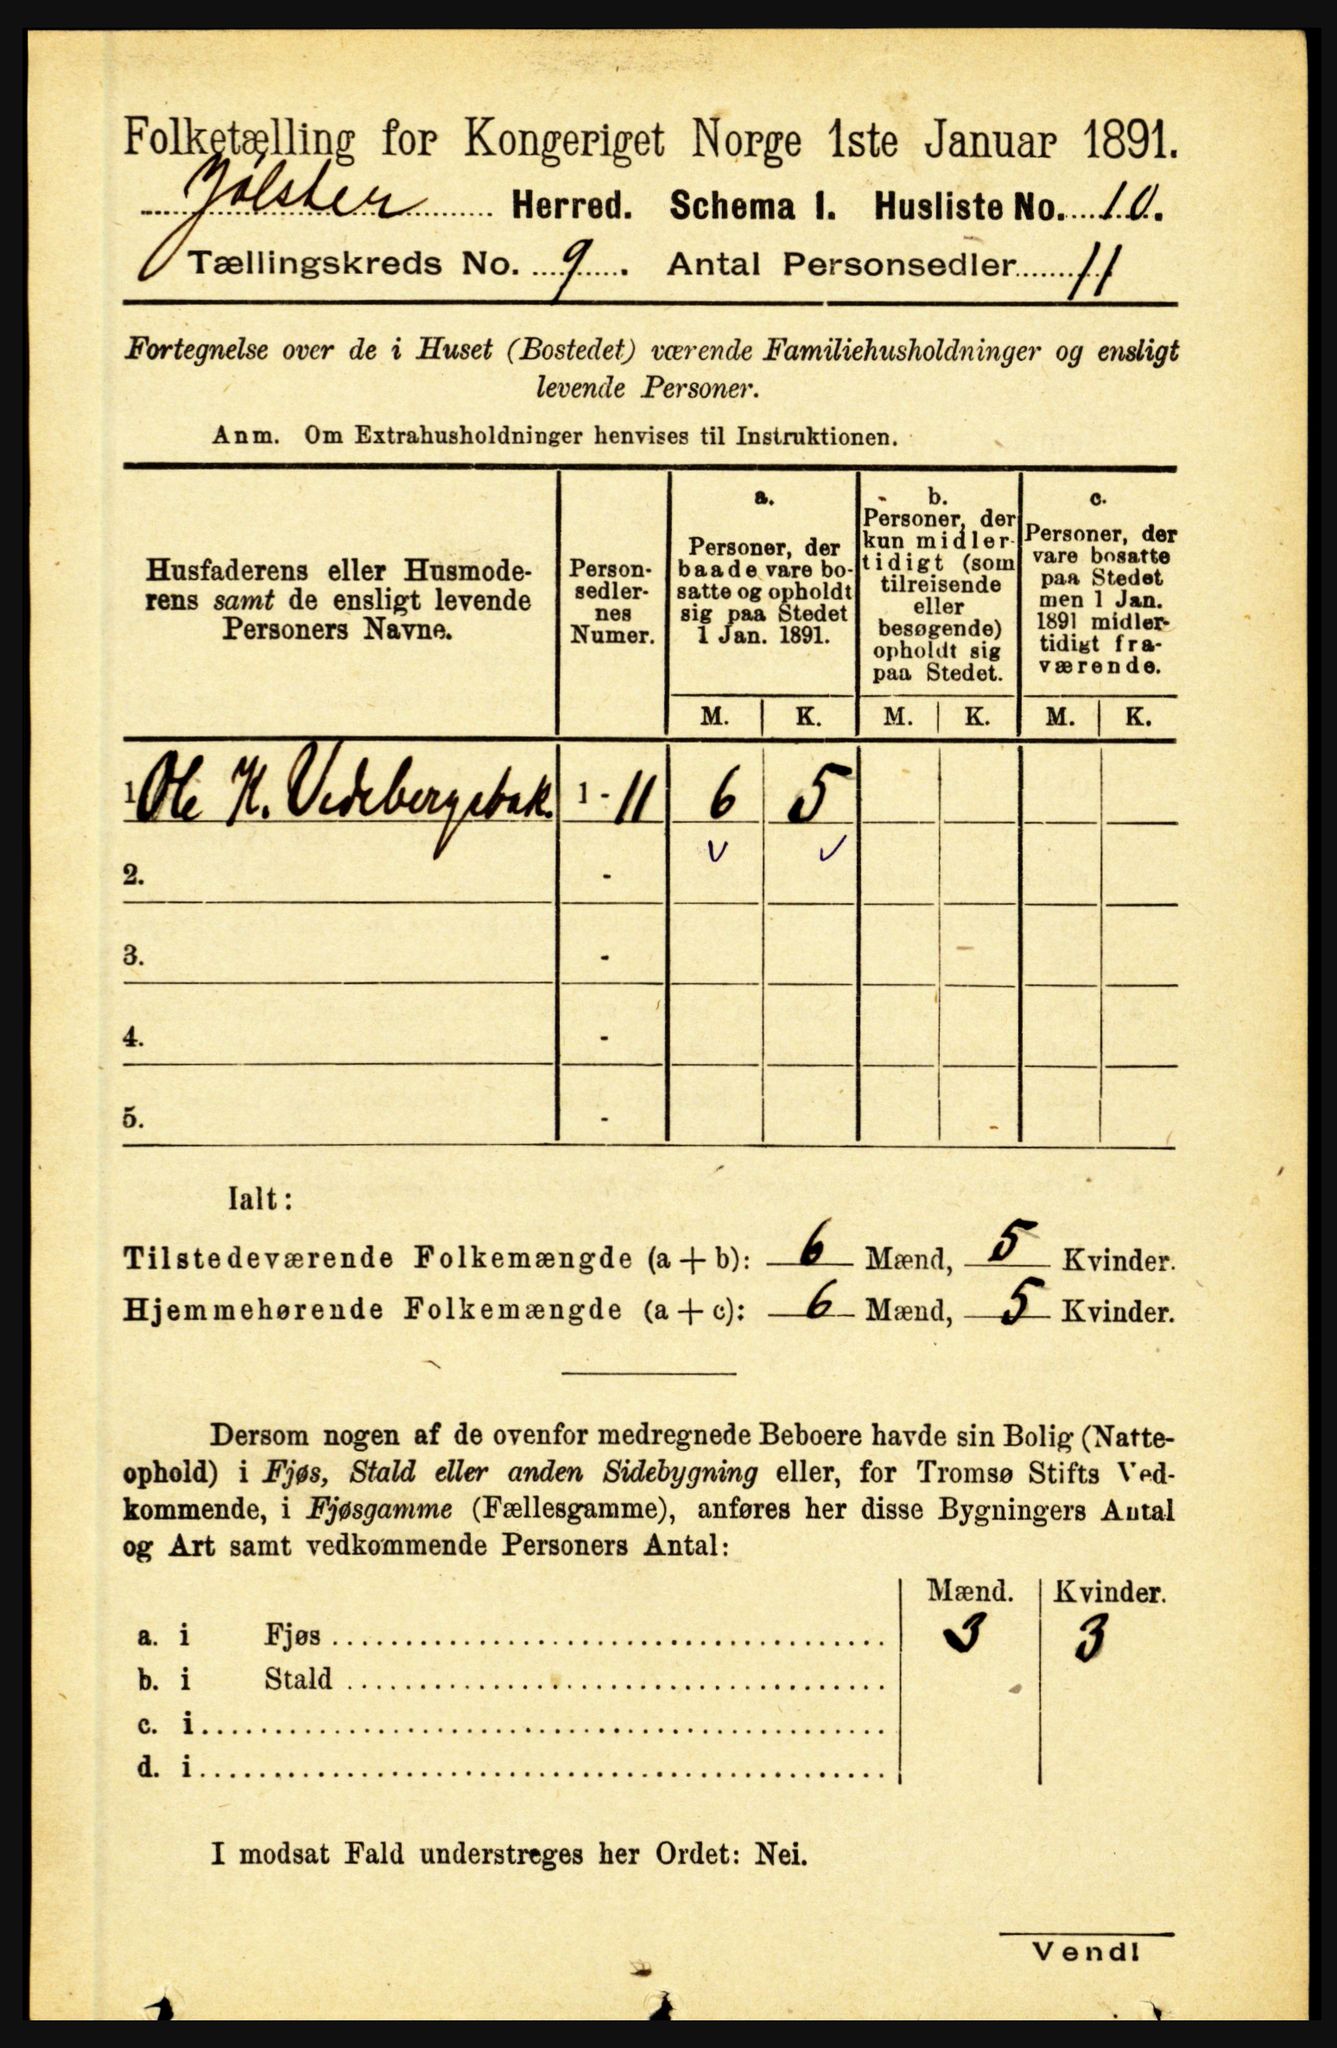 Folketælling for Kongeriget Norge 1ste Januar 1891.
Jølster Herred. Schema I. Husliste No. 10.
Tællingskreds No. 9. Antal Personsedler 11
Fortegnelse over de i Huset (Bostedet) værende Familiehusholdninger og ensligt
levende Personer.
Anm. Om Extrahusholdninger henvises til Instruktionen.
Husfaderens eller Husmode-
rens samt de ensligt levende
Personers Navne.
Person-
sedler-
nes
Numer.
a.
Personer, der
baade vare bo-
satte og opholdt
sig paa Stedet
1 Jan. 1891.
b.
Personer, der
kun midler-
tidigt (som
tilreisende
eller
besøgende)
opholdt sig
paa Stedet.
c.
Personer, der
vare bosatte
paa Stedet
men 1 Jan.
1891 midler-
tidigt fra-
værende.
M. K. M. K. M. K.
1 Ole K. Vedebergsbak. 1 - 11 6 5
2. -
3. -
4. -
5. -
Ialt:
Tilstedeværende Folkemængde (a + b): 6 Mænd, 5 Kvinder.
Hjemmehørende Folkemængde (a + c): 6 Mænd, 5 Kvinder.
Dersom nogen af de ovenfor medregnede Beboere havde sin Bolig (Natte-
ophold) i Fjøs, Stald eller anden Sidebygning eller, for Tromsø Stifts Ved-
kommende, i Fjøsgamme (Fællesgamme), anføres her disse Bygningers Antal
og Art samt vedkommende Personers Antal:
Mænd. Kvinder.
a. i Fjøs 3 3
b. i Stald
c. i
d. i
I modsat Fald understreges her Ordet: Nei.
Vend!